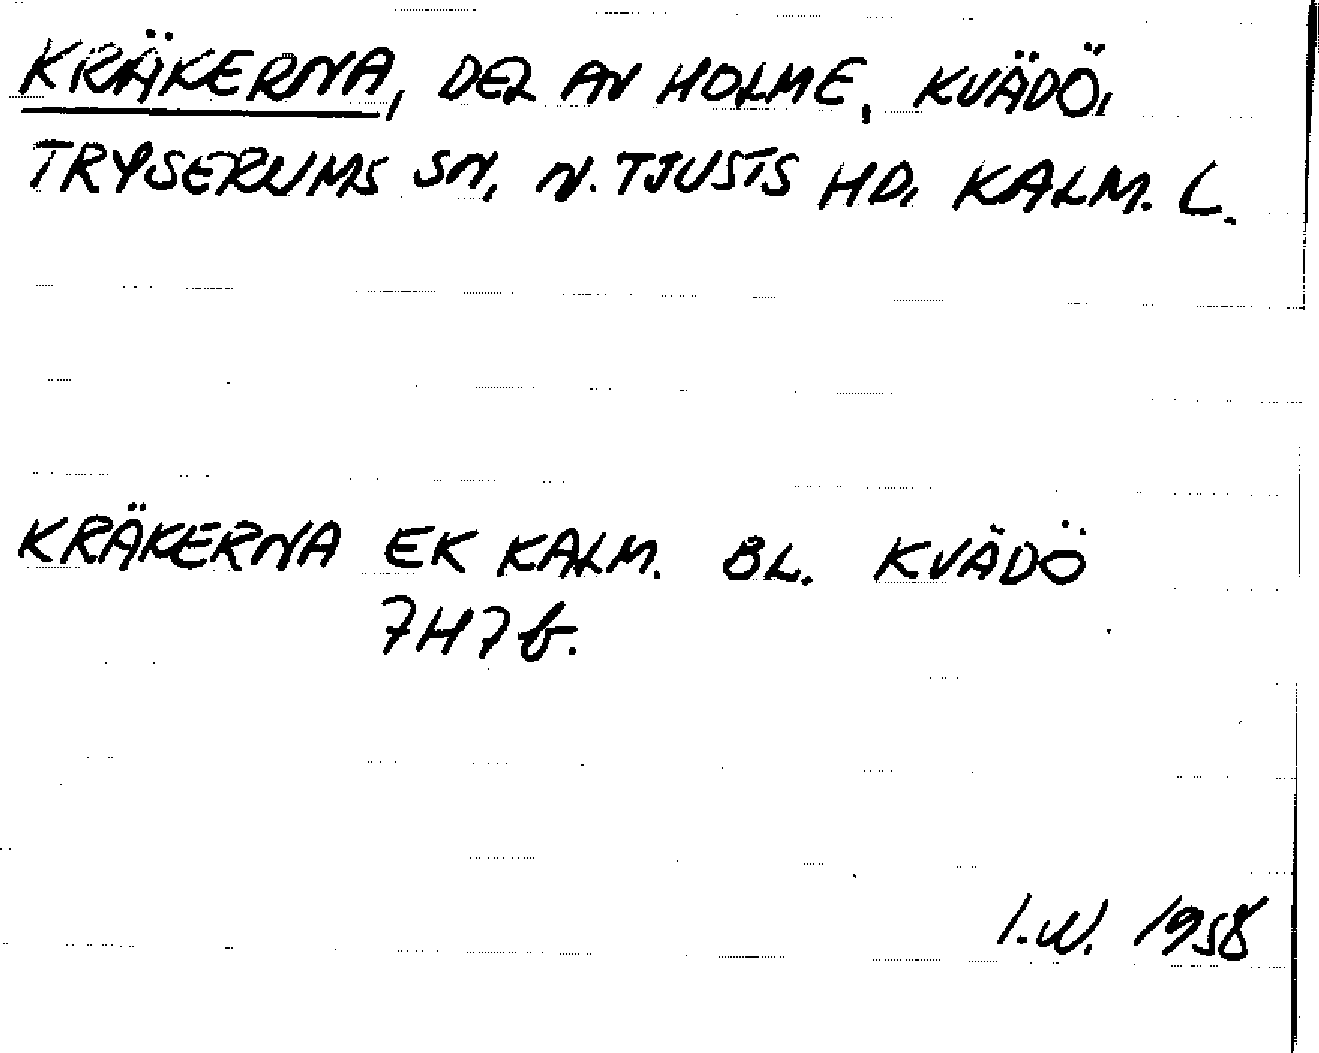 KRÄKERNA, DEL AV HOLME, KVÄDÖ,
TRYSERUMS SN, N. TJUSTS HD, KALM. L.
KRÄKERNA EK KALM. BL. KVÄDÖ
7H7b.
I.W. 1958